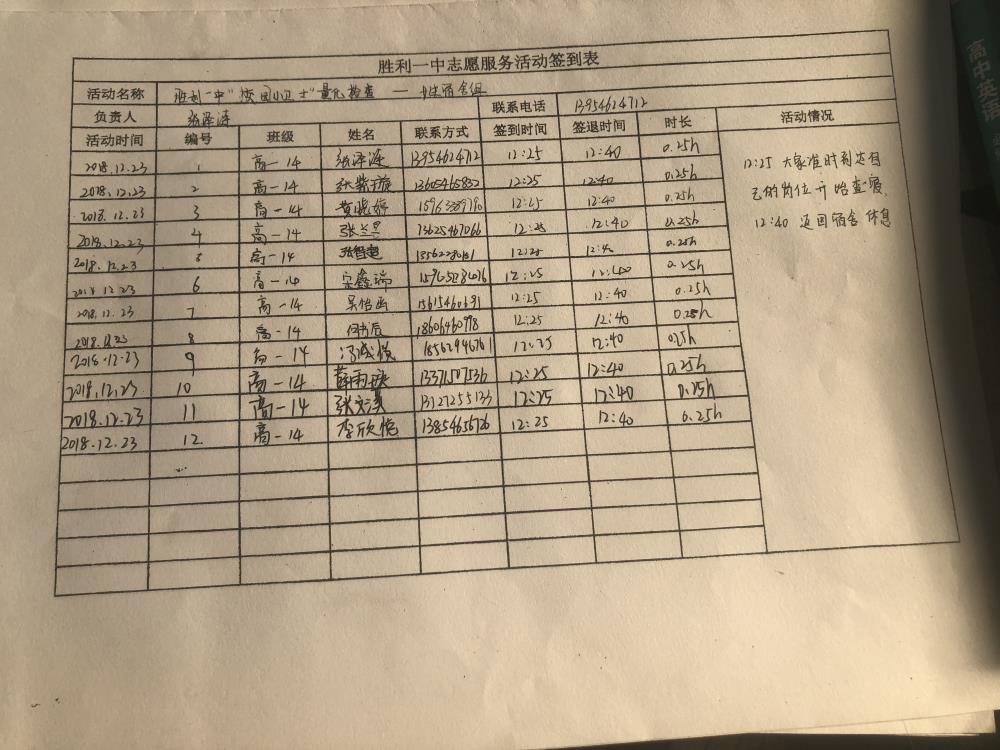 胜利一中志愿服务活动签到表
活动名称 胜利一中"校园小卫士"量化检查 — 女生宿舍组
负责人 张泽涟 联系电话 13954624712
活动时间 编号 班级 姓名 联系方式 签到时间 签退时间 时长 活动情况
2018.12.23 1 高一14 张泽涟 13954624712 12:25 12:40 0.25h
2018.12.23 2 高一14 张紫璇 13605465832 12:25 12:40 0.25h
2018.12.23 3 高一14 黄晓婷 12:25 12:40 0.25h
2018.12.23 4 高一14 13625467066 12:25 12:40 0.25h
2018.12.23 5 高一14 张智超 12:25 12:40 0.25h
2018.12.23 6 高一14 宗鑫瑞 12:25 12:40 0.25h
2018.12.23 7 高一14 吴怡函 15615460691 12:25 12:40 0.25h
2018.12.23 8 高一14 何书辰 18606460998 12:25 12:40 0.25h
2018.12.23 9 高一14 冯诚悦 18562946761 12:25 12:40 0.25h
2018.12.23 10 高一14 13371507536 12:25 12:40 0.25h
2018.12.23 11 高一14 张文漪 13127255133 12:25 12:40 0.25h
2018.12.23 12 高一14 李欣悦 13854656726 12:25 12:40 0.25h
12:25 大家准时到达自
己的岗位开始查寝
12:40 返回宿舍休息
高中英语